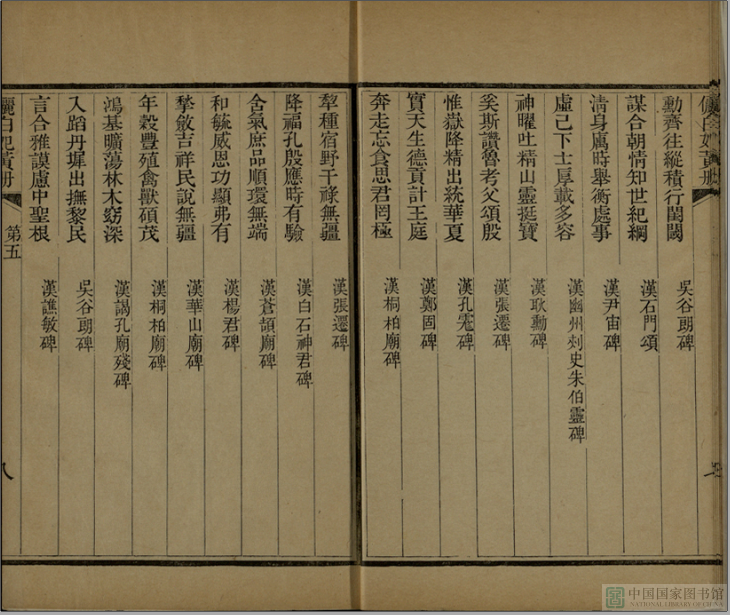 儷白妃黃冊
動齊往縱積行閨閾 吳谷朗碑
謀合朝情知世紀綱 漢石門頌
清身厲時舉衡處事 漢尹宙碑
虛己下士厚載多容 漢幽州刺史朱伯靈碑
神曜吐精山靈挺寶 漢耿勳碑
奚斯讚魯考父頌殷 漢張遷碑
惟嶽降精出統華夏 漢孔宙碑
實天生德貢計王庭 漢鄭固碑
奔走忘食思君罔極 漢桐柏廟碑
犂種宿野干祿無疆 漢張遷碑
降福孔殷應時有驗 漢白石神君碑
含氣庶品順環無端 漢蒼頡廟碑
和毓威恩功顯弗有 漢楊君碑
孳斂吉祥民說無疆 漢華山廟碑
年穀豐殖禽獸碩茂 漢桐柏廟碑
鴻基曠蕩林木窈深 漢謁孔廟殘碑
入蹈丹墀出撫黎民 吳谷朗碑
言合雅謨慮中聖根 漢譙敏碑
儷白妃黃冊 第五 八
中国国家图书馆
NATIONAL LIBRARY OF CHINA